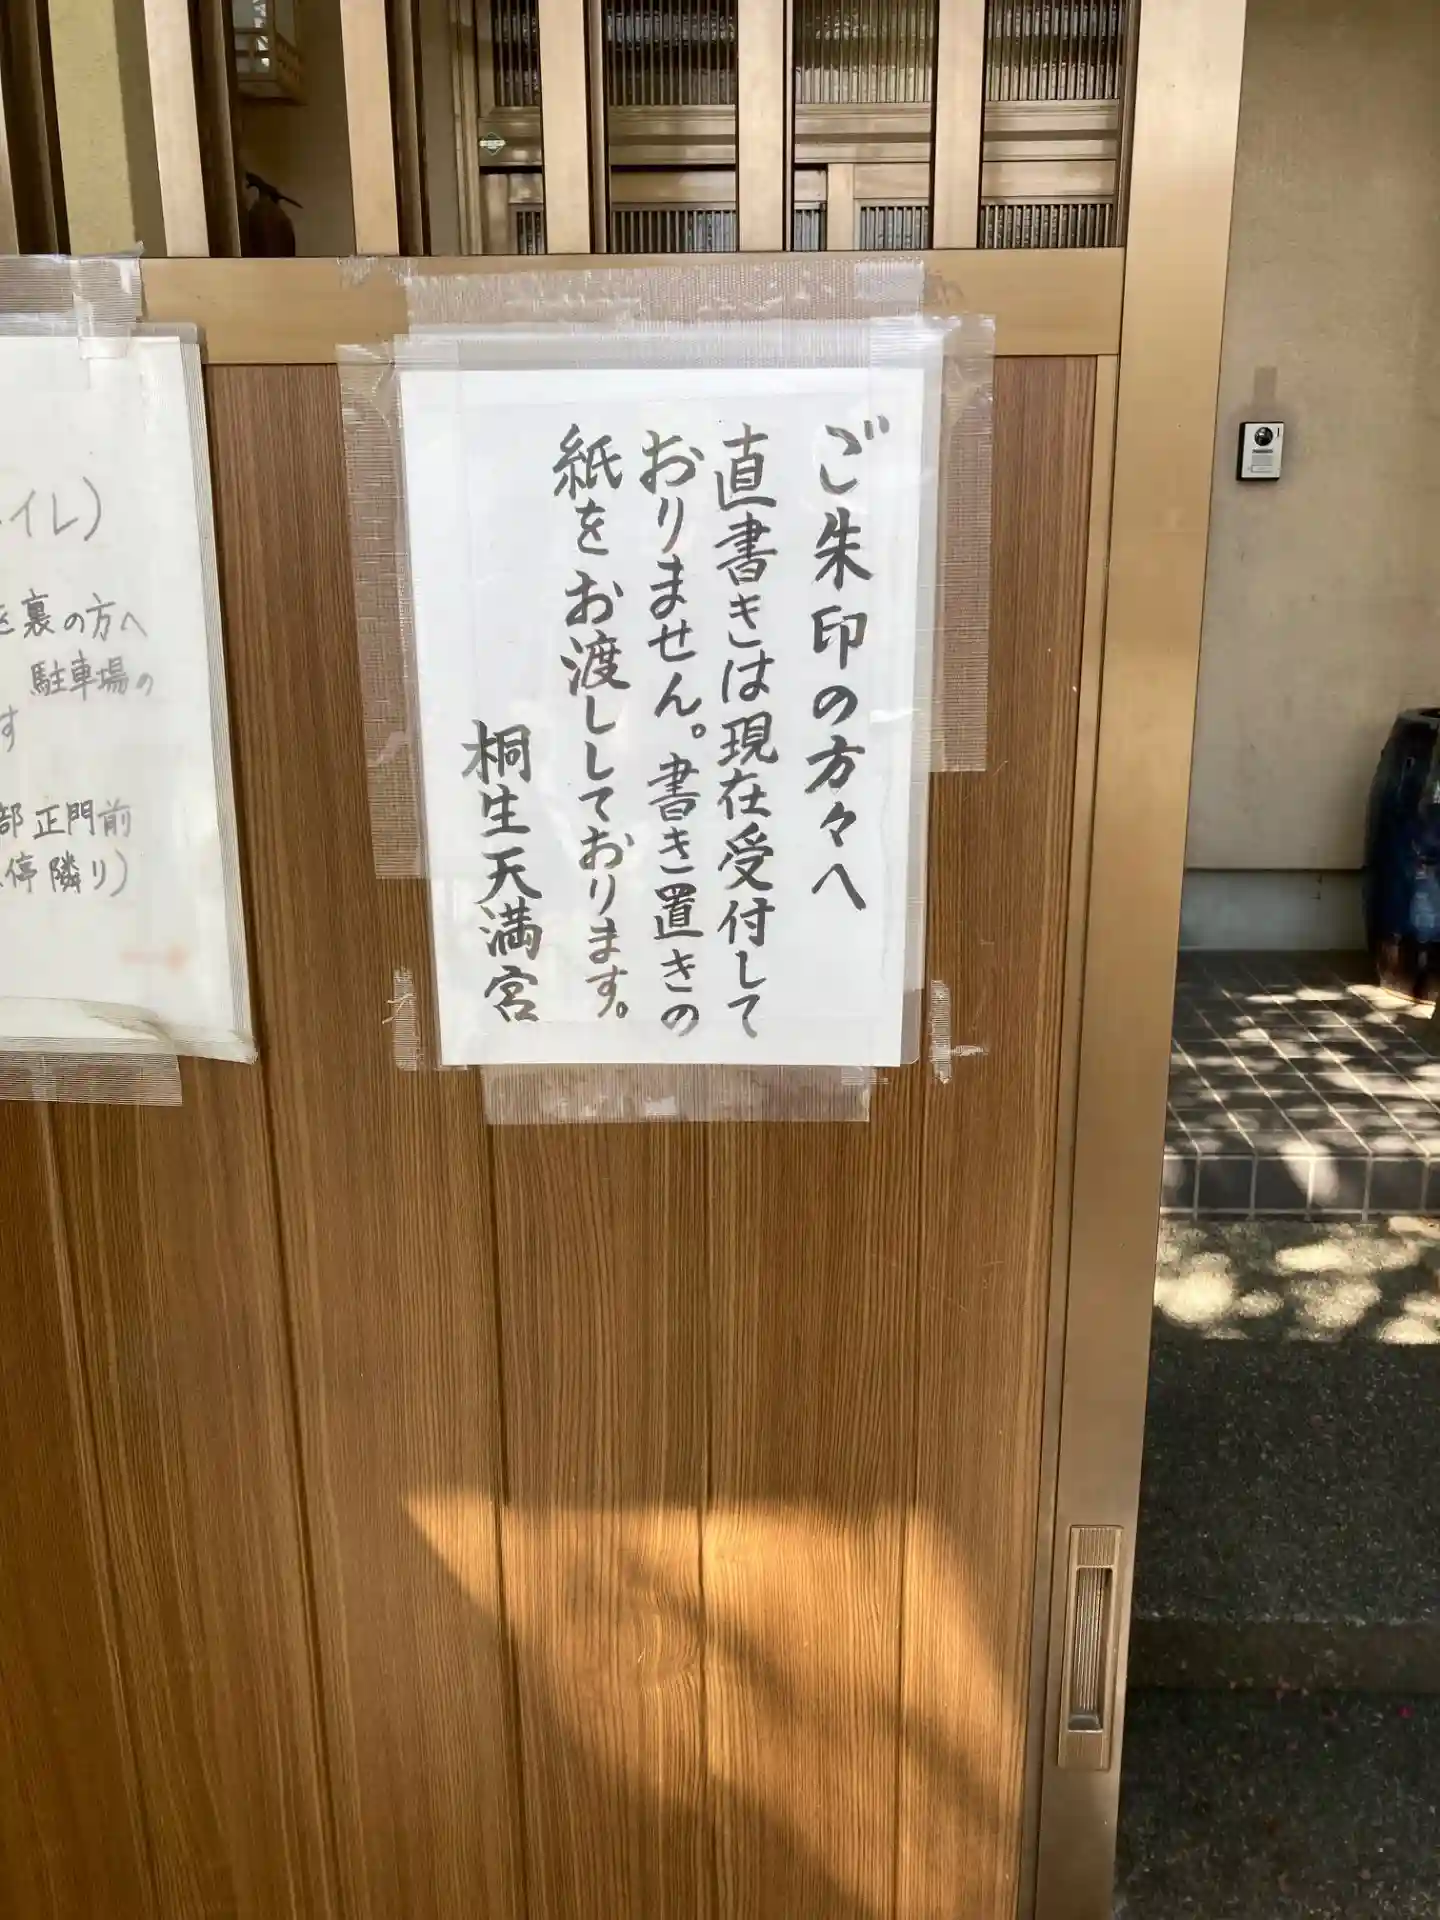 ご朱印の方々へ
直書きは現在受付して
おりません。書き置きの
紙をお渡ししております。
桐生天満宮
イレ)
裏の方へ
駐車場の
す
部正門前
停隣り)